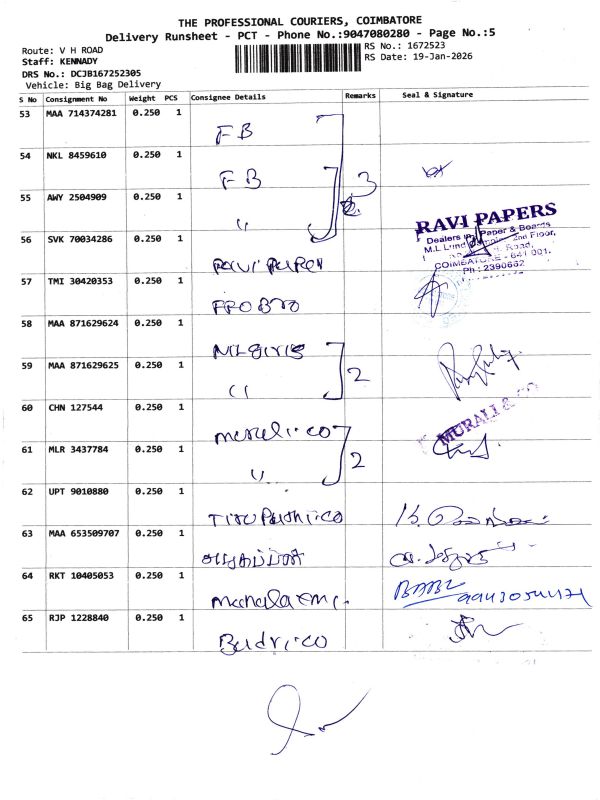 THE PROFESSIONAL COURIERS, COIMBATORE
Delivery Runsheet - PCT - Phone No.:9047080280 - Page No.:5
Route: V H ROAD
Staff: KENNADY
DRS No.: DCJB167252305
Vehicle: Big Bag Delivery
RS No.: 1672523
RS Date: 19-Jan-2026
S No Consignment No Weight PCS Consignee Details Remarks Seal & Signature
53 MAA 714374281 0.250 1 FB
54 NKL 8459610 0.250 1 FB 3
55 AWY 2504909 0.250 1 "
RAVI PAPERS
Dealers in Paper & Boards
2nd Floor,
Road,
COIMBATORE - 641 001.
Ph : 2390662
56 SVK 70034286 0.250 1 Ravi Paper
57 TMI 30420353 0.250 1 PROBTO
58 MAA 871629624 0.250 1 Nilgiris
59 MAA 871629625 0.250 1 " 2
60 CHN 127544 0.250 1 murali.co MURALI & CO
61 MLR 3437784 0.250 1 " 2
62 UPT 9010880 0.250 1
63 MAA 653509707 0.250 1
64 RKT 10405053 0.250 1 BABU
65 RJP 1228840 0.250 1 Badri.co